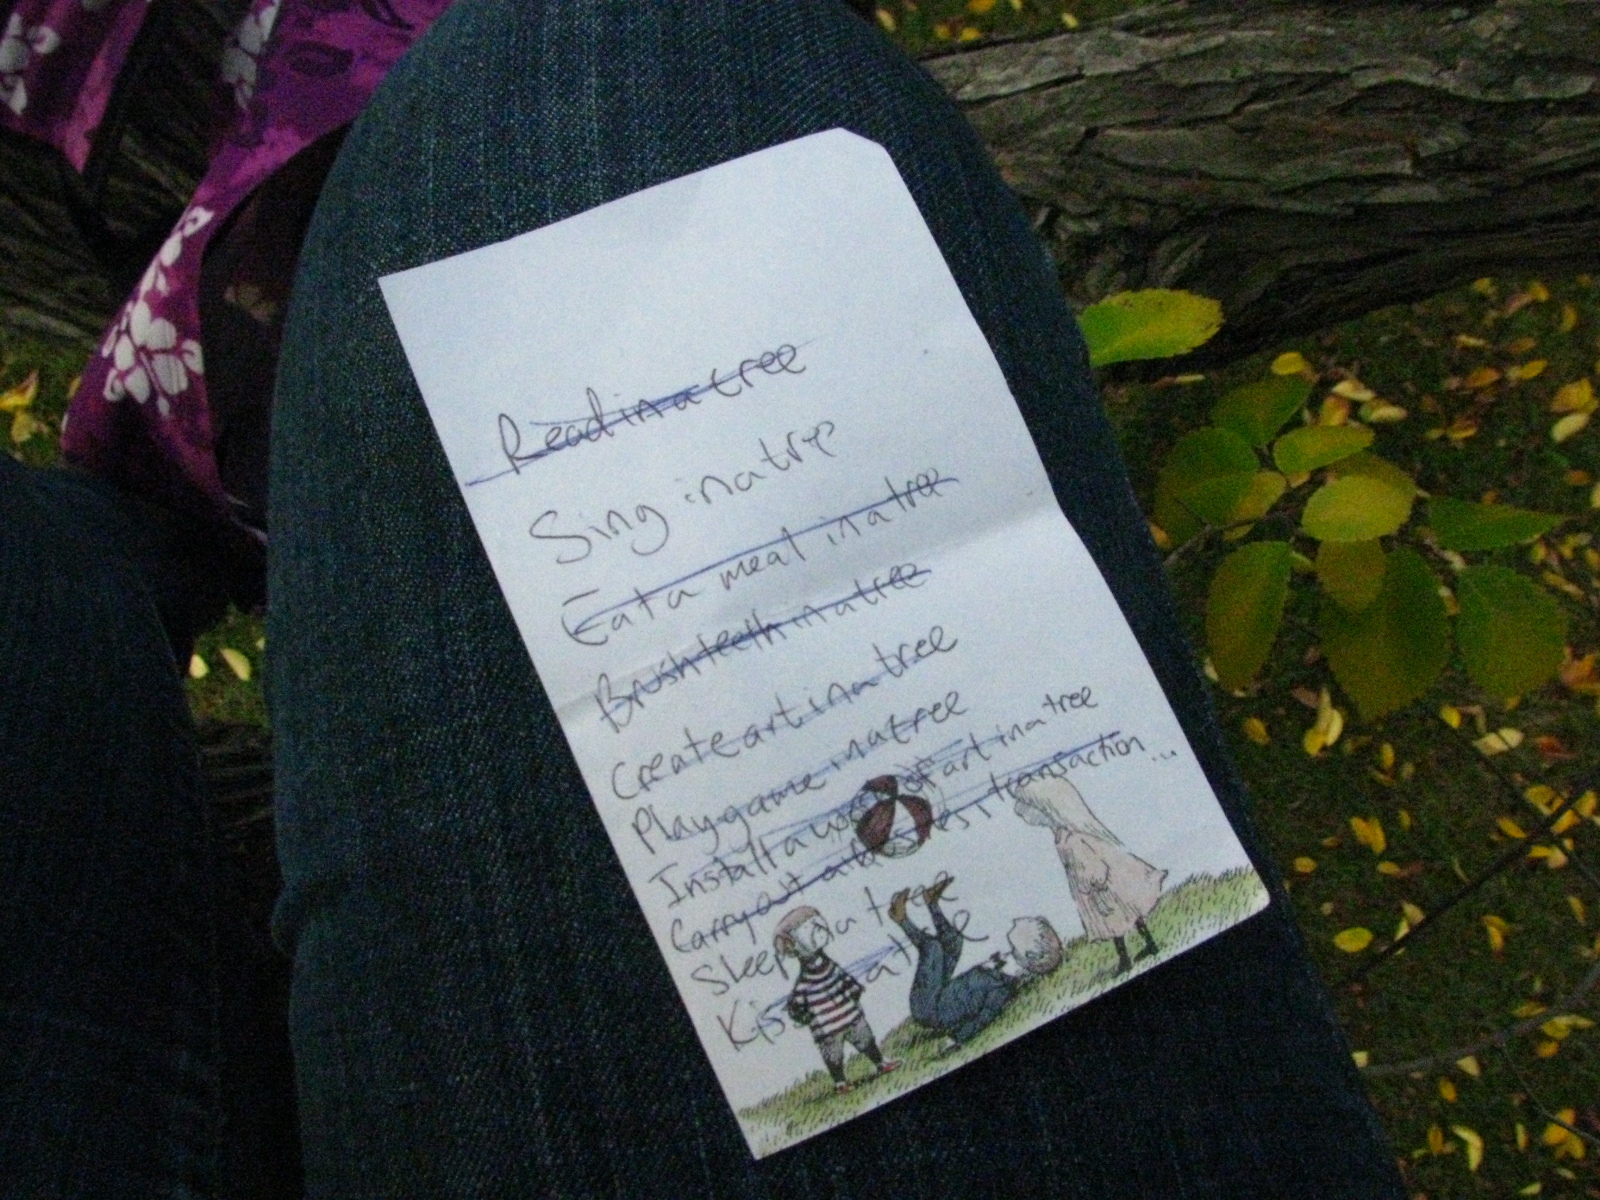 Read in a tree
Sing in a tree
Eat a meal in a tree
Brush teeth in a tree
Create art in a tree
Play game in a tree
Install a work of art in a tree
Carry out a business transaction...
Sleep in a tree
Kiss in a tree